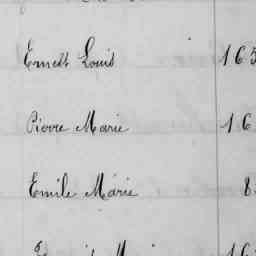 Ernest Louis 165
Pierre Marie 16
Emile Marie 8